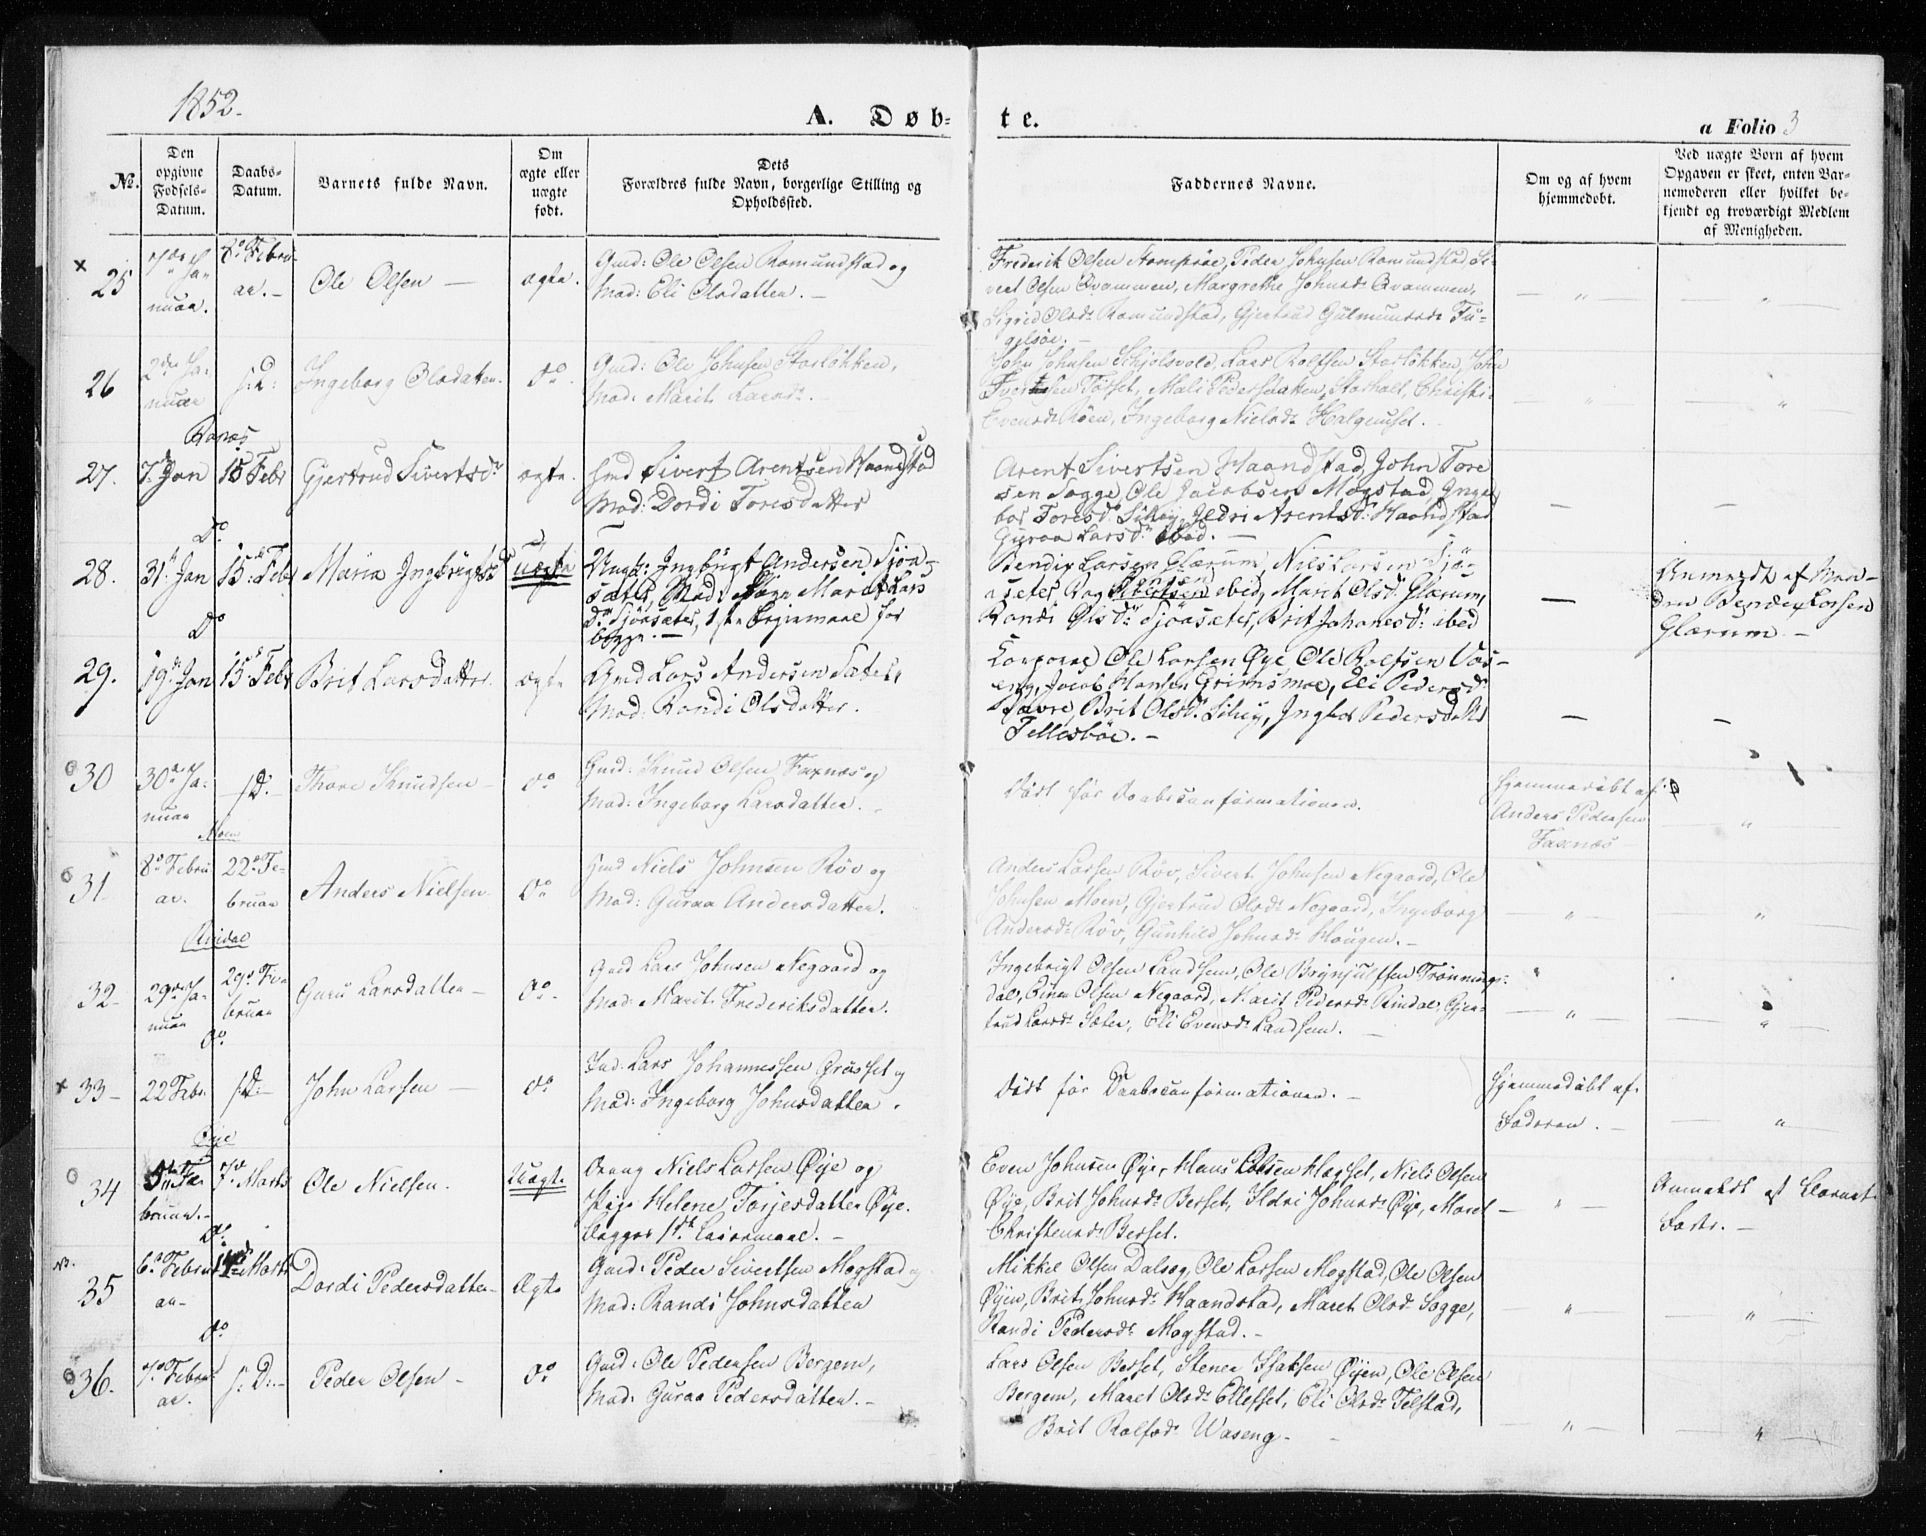 1852.
A. Døb-
te.
a Folio 3
No.
Den opgivne Fødsels-Datum.
Daabs-Datum.
Barnets fulde Navn.
Om ægte eller uægte født.
Dets
Forældres fulde Navn, borgerlige Stilling og Opholdssted.
Faddernes Navne.
Om og af hvem hjemmedøbt.
Ved uægte Børn af hvem Opgaven er skeet, enten Barnemoderen eller hvilket bekjendt og troværdigt Medlem af Menigheden.
25
Januar.
8de Februar. -
Ole Olsen -
ægte.
Gmd: Ole Olsen Romundstad og
Mad: Eli Olsdatter. -
Frederik Olsen, Peder Johnsen Romundstad, Si-
vert Olsen Qvammen, Margrethe Johnsdr Qvammen,
Sigrid Olsdr Romundstad, Gjertrud Gulmundsdr Fu-
gelsøe. -
26
2den Ja-
nuar
s: D:
Ingeborg Olsdatter.
do.
Gmd: Ole Johnsen Storløkken,
Mad: Marit Larsdr. -
John Johnsen Skjølsvold, Lars Rolfsen Storløkken, John
Tørset, Mali Pedersdatter, Christi
Evensdr Røen, Ingeborg Nielsdr Halgenset.
Ranes
27.
7. Jan
15 Febr
Gjertrud Sivertsdr
ægte.
Gmd Sivert Arentsen Haandstad
Mad: Dordi Toresdatter
Arent Sivertsen Haandstad, John Tore
sen Sogge, Ole Jacobsen Mogstad, Inge
bor Toresdr Settem, Ildri Arentsdr Haandstad
Guraa Larsdr ibid. -
Do
28.
31te Jan
15de Feb
Maria Ingbrigtsdr
uægte
Ungk: Ingbrigt Andersen Sjøa-
sæter, Mad: Pige Marit Lars
Dr Sjøasæter, 1ste Leiermaal for
begge. -
Bendix Larsen Glærum, Nils Larsen Sjø-
asæter, ibid, Marit Olsdr Glærum,
Randi Olsdr Sjøasæter, Brit Johanesdr ibid
Anmeldt af Man-
den Bendix Larsen
Glærum. -
Do
29.
19de Jan
15de Feb
Brit Larsdatter.
ægte
Gmd Lars Andersen Sæter,
Mad: Randi Olsdatter.
Korporal Ole Larsen Øye, Ole Rolfsen Vas-
eng, Jacob Hansen Grimsmoe, Eli Pedersdr
Brit Olsdr, Ingbor Pedersdatter
Tellesbøe. -
30
30te Ja-
nuar
s: D:
Thore Knudsen -
do
Gmd: Knud Olsen Foxnæs og
Mad: Ingeborg Larsdatter. -
Død før Daabsconformationen.
Hjemmedøbt af
Anders Pedersen
Foxnæs
Moen
31
8de Febru
ar.
22de Fe-
bruar
Anders Nielsen
do
Gmd Niels Johnsen Røv og
Mad: Guraa Andersdatter.
Anders Larsen Røv, Sivert Johnsen Negaard, Ole
Johnsen Moen, Gjertrud Olsdr Negaard, Ingeborg
Andersdr Røv, Gunhild Johnsdr Haugen. -
Rindal
32
29de Ja-
nuar
29de Fe-
bruar
Guru Larsdatter -
do -
Gmd Lars Johnsen Negaard og
Mad: Marit Frederiksdatter.
Ingebrigt Olsen Landsem, Ole Brynjulfsen Trønnings-
dal, Einer Olsen Negaard, Marit Pedersdr Rindal, Gjer-
trud Larsdr Sæter, Eli Evensdr Landsem. -
do
33 -
22 Febr.
s: D:
John Larsen -
do
Ind: Lars Johannessen Grøsset og
Mad: Ingeborg Johnsdatter.
Død før Daabsconformationen. -
Hjemmedøbt af
Faderen. -
Øie
34
Fe-
bruar. -
7de Marts
Ole Nielsen.
Uægte
Dreng Niels Larsen Øye og
Pige Helene Torjesdatter Øye.
Begges 1ste Leiermaal. -
Even Johnsen Øye, Hans Olsen Hagset, Niels Olsen
Øye, Brit Johnsdr Besset, Ildri Johnsdr Øye, Maret
Christensdr Besset.
Anmeldt af Barnets
Fader. -
do
35
6te Febru
ar -
14de Marts
Dordi Pedersdatter -
Ægte
Gmd: Peder Sivertsen Mogstad og
Mad: Randi Johnsdatter
Mikkel Olsen Dalsøg, Ole Larsen Mogstad, Ole Olsen
Øyen, Brit Johnsdr Haandstad, Maret Olsdr Sogge,
Randi Pedersdr Mogstad. -
do
36.
7de Febru
ar.
s: D: -
Peder Olsen -
do
Gmd: Ole Pedersen Bergem,
Mad: Guraa Pedersdatter. -
Lars Olsen Besset, Stener Isaksen Øyen, Ole Olsen
Bergem, Maret Olsdr Ellefset, Eli Olsdr Telstad,
Brit Rolfsdr Waseng -